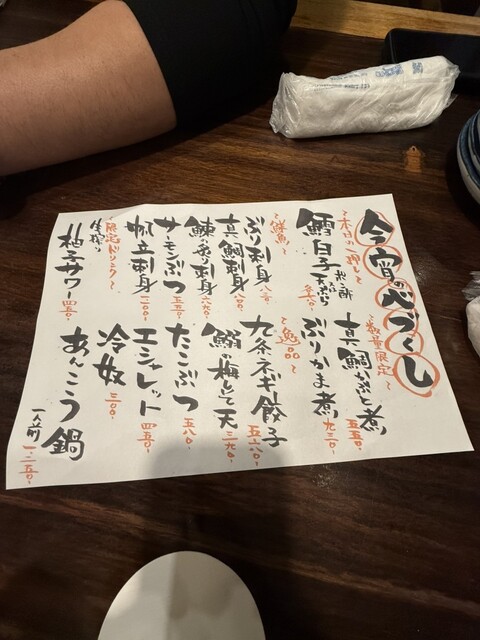 今宵の心づくし
~本日の一押し~
~数量限定~
鱈白子
天ぷら
真鯛かぶと煮 五五〇-
ぶりかま煮 九三〇-
~鮮魚~
ぶり刺身
真鯛刺身
鰊の炙り刺身
サーモンぶつ 五五〇-
帆立刺身
~逸品~
九条ネギ餃子 五六〇-
鰯の梅しそ天 三九〇-
たこぶつ 五八〇-
エシャレット 四五〇-
冷奴 三〇〇-
あんこう鍋
一人前 一、二五〇-
~限定ドリンク~
生搾り
柚子サワー 四五〇-